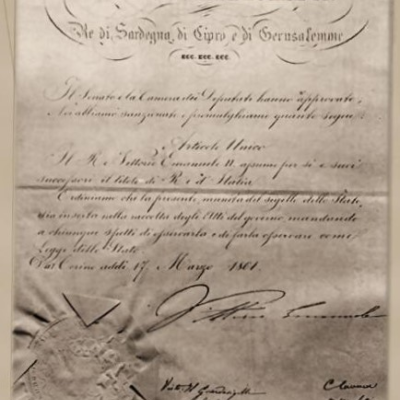 Re di Sardegna, di Cipro e di Gerusalemme
ecc. ecc. ecc.
Il Senato e la Camera dei Deputati hanno approvato,
Noi abbiamo sanzionato e promulghiamo quanto segue:
Articolo Unico
Il Re Vittorio Emanuele II. assume per sè e suoi
successori il titolo di Re d'Italia
Ordiniamo che la presente, munita del sigillo dello Stato,
sia inserta nella raccolta degli Atti del governo, mandando
a chiunque spetti di osservarla e di farla osservare come
Legge dello Stato
Dat. Torino addì 17 Marzo 1861.
Vittorio Emanuele
C Cavour